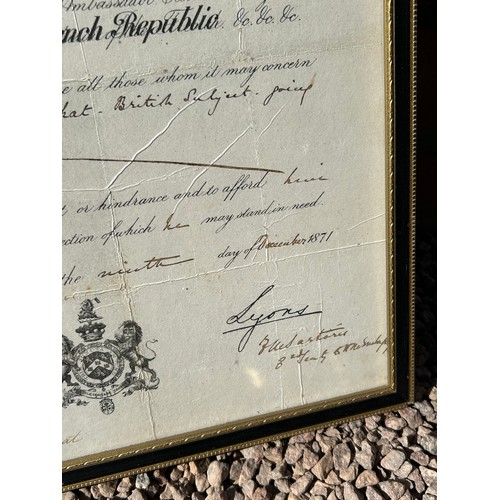 Ambassador
French Republic &c. &c. &c.
all those whom it may concern
that British Subject going
or hindrance and to afford him
of which he may stand in need.
the ninth day of December 1871
Lyons